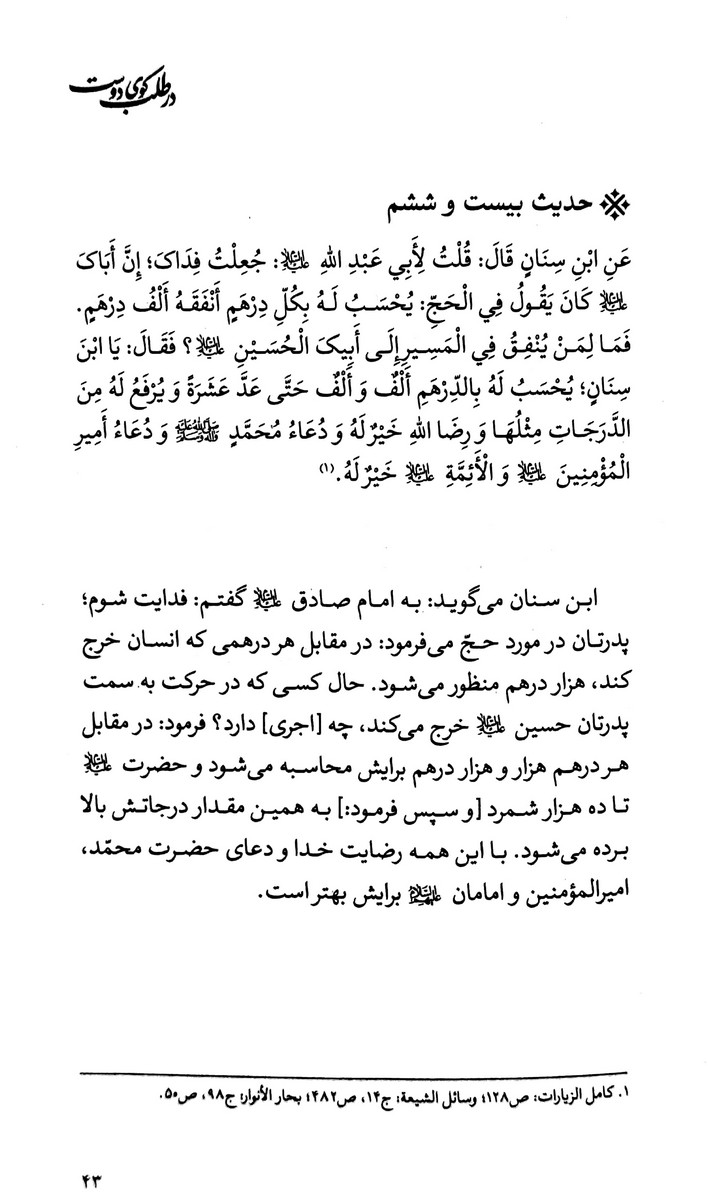 در طلب کوی دوست
حدیث بیست و ششم
عَنِ ابْنِ سِنَانٍ قَالَ: قُلْتُ لِأَبِي عَبْدِ اللهِ علیه‌السلام: جُعِلْتُ فِدَاکَ؛ إِنَّ أَبَاکَ
علیه‌السلام کَانَ یَقُولُ فِي الْحَجِّ: یُحْسَبُ لَهُ بِکُلِّ دِرْهَمٍ أَنْفَقَهُ أَلْفُ دِرْهَمٍ.
فَمَا لِمَنْ یُنْفِقُ فِي الْمَسِیرِ إِلَی أَبِیکَ الْحُسَیْنِ علیه‌السلام؟ فَقَالَ: یَا ابْنَ
سِنَانٍ؛ یُحْسَبُ لَهُ بِالدِّرْهَمِ أَلْفٌ وَ أَلْفٌ حَتَّی عَدَّ عَشَرَةً وَ یُرْفَعُ لَهُ مِنَ
الدَّرَجَاتِ مِثْلُهَا وَ رِضَا اللهِ خَیْرٌ لَهُ وَ دُعَاءُ مُحَمَّدٍ ﷺ وَ دُعَاءُ أَمِیرِ
الْمُؤْمِنِینَ علیه‌السلام وَ الْأَئِمَّةِ علیه‌السلام خَیْرٌ لَهُ.(۱)
ابن سنان می‌گوید: به امام صادق علیه‌السلام گفتم: فدایت شوم؛
پدرتان در مورد حجّ می‌فرمود: در مقابل هر درهمی که انسان خرج
کند، هزار درهم منظور می‌شود. حال کسی که در حرکت به سمت
پدرتان حسین علیه‌السلام خرج می‌کند، چه [اجری] دارد؟ فرمود: در مقابل
هر درهم هزار و هزار درهم برایش محاسبه می‌شود و حضرت علیه‌السلام
تا ده هزار شمرد [و سپس فرمود:] به همین مقدار درجاتش بالا
برده می‌شود. با این همه رضایت خدا و دعای حضرت محمّد،
امیرالمؤمنین و امامان علیهم‌السلام برایش بهتر است.
۱. کامل الزیارات: ص۱۲۸؛ وسائل الشیعة: ج۱۴، ص۴۸۲؛ بحار الأنوار: ج۹۸، ص۵۰.
۴۳